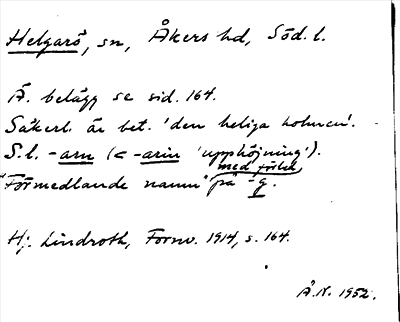 Helgarö, sn, Åkers hd, Söd. l.
Ä. belägg se sid. 164.
Säkerl. är bet. 'den heliga holmen'.
S.l. -arn (< -arin 'upphöjning').
med förled
"Förmedlande namn" på -g.
Hj. Lindroth, Fornv. 1914, s. 164.
Å.N. 1952.